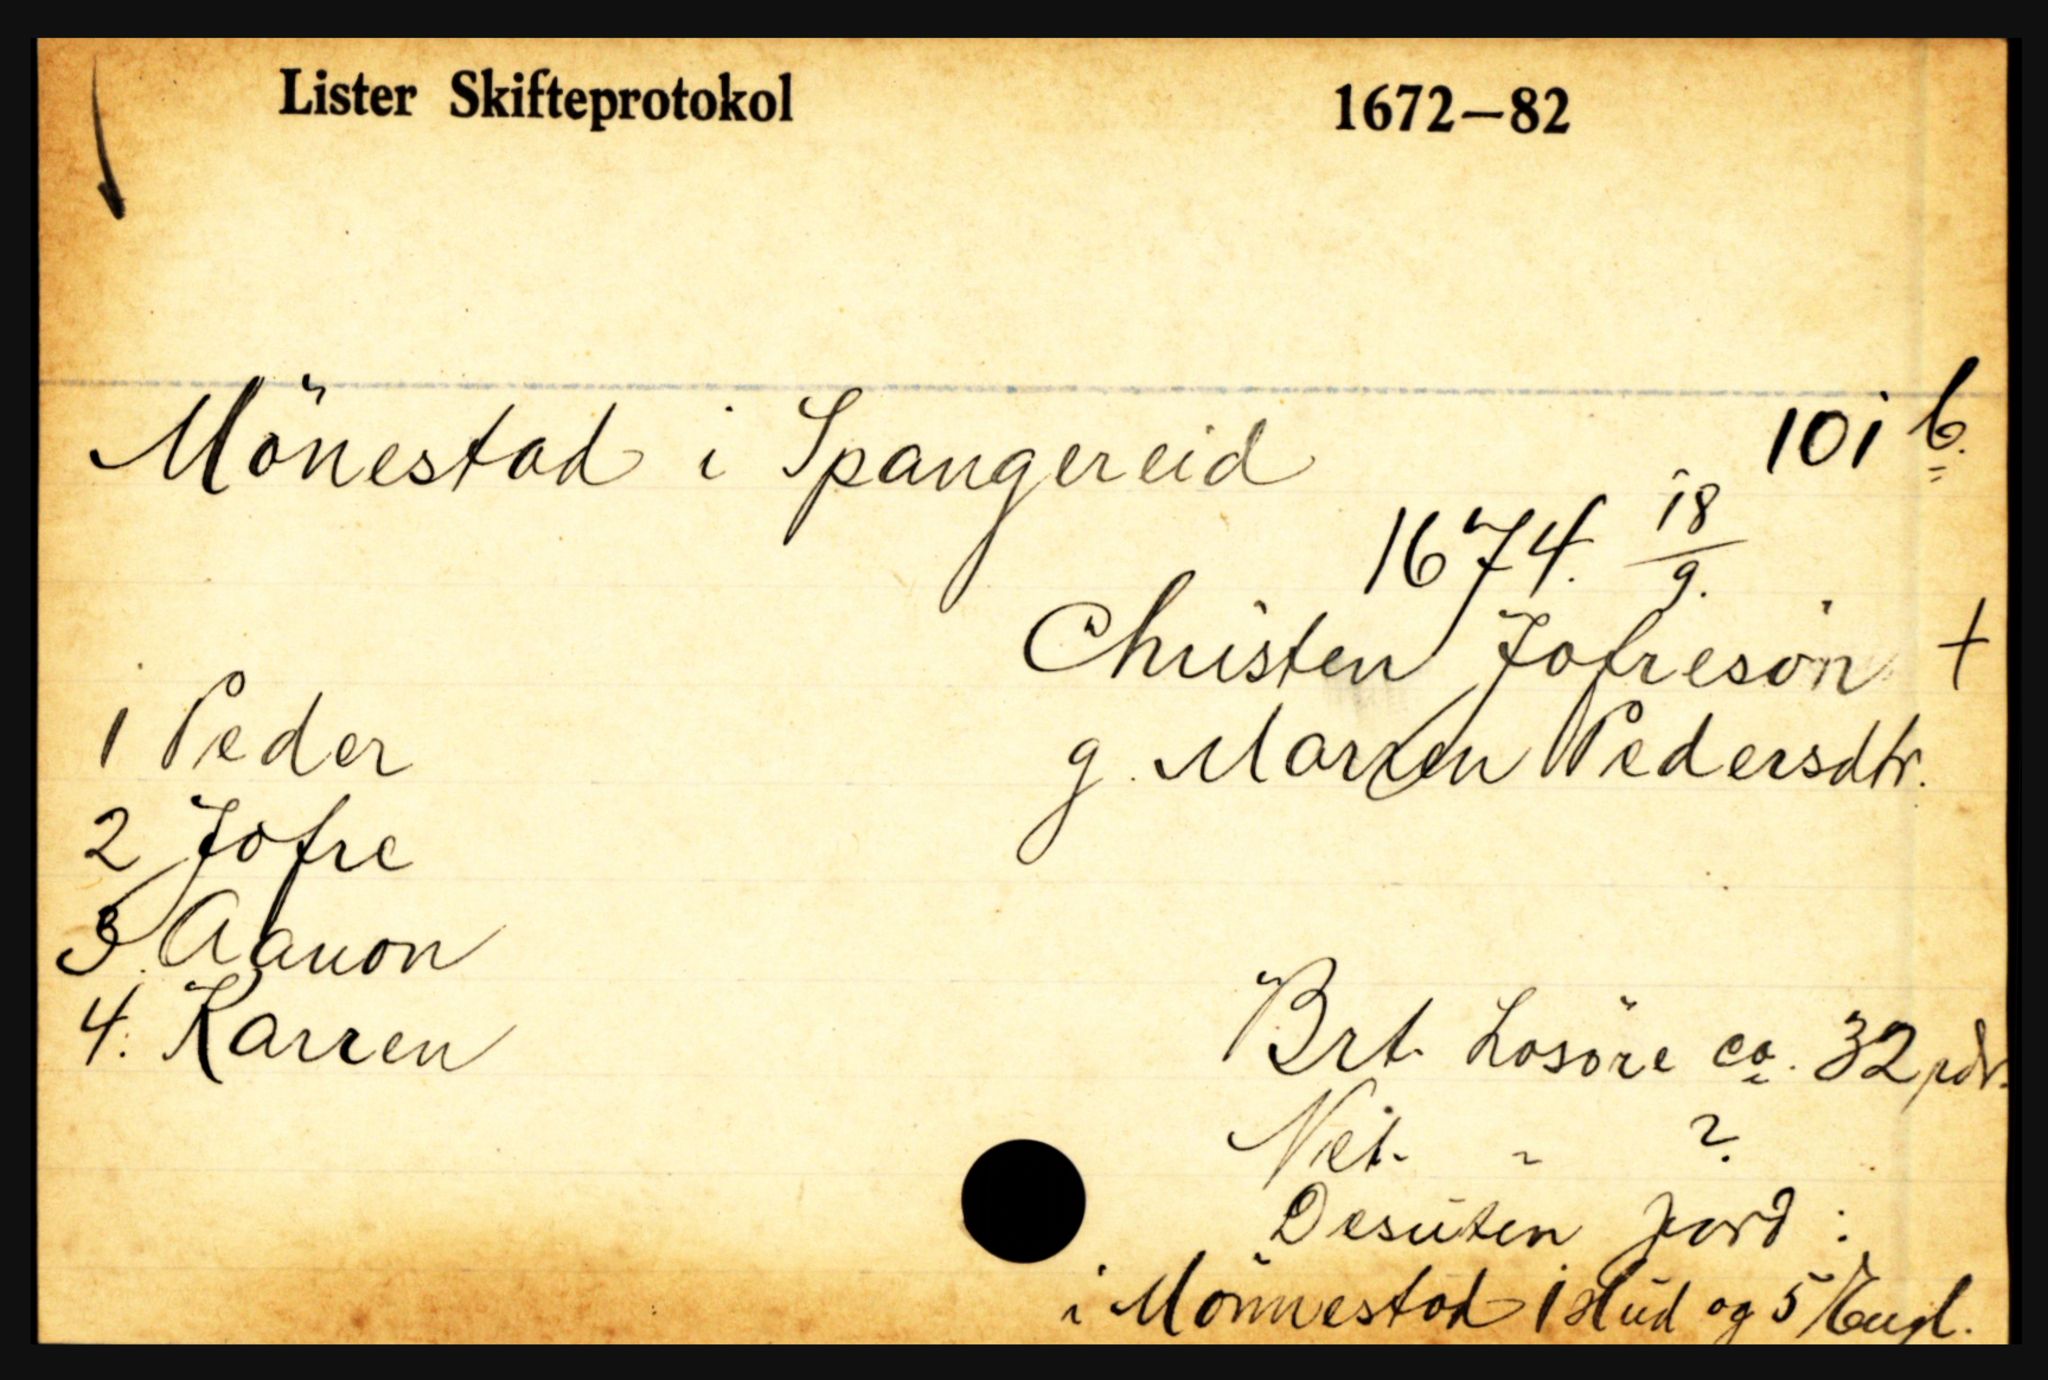 Lister Skifteprotokol 1672–82
Mönestad i Spangereid 101 b.
1674. 18/9.
Christen Jofresön +
g. Marren Pedersdtr.
1 Peder
2 Jofre
3. Aanon
4. Karren
Brt. Losöre ca. 32 pdr.
Net. " ?
Desuten jord :
i Mönnestad 1 Hud og 5 Engl.